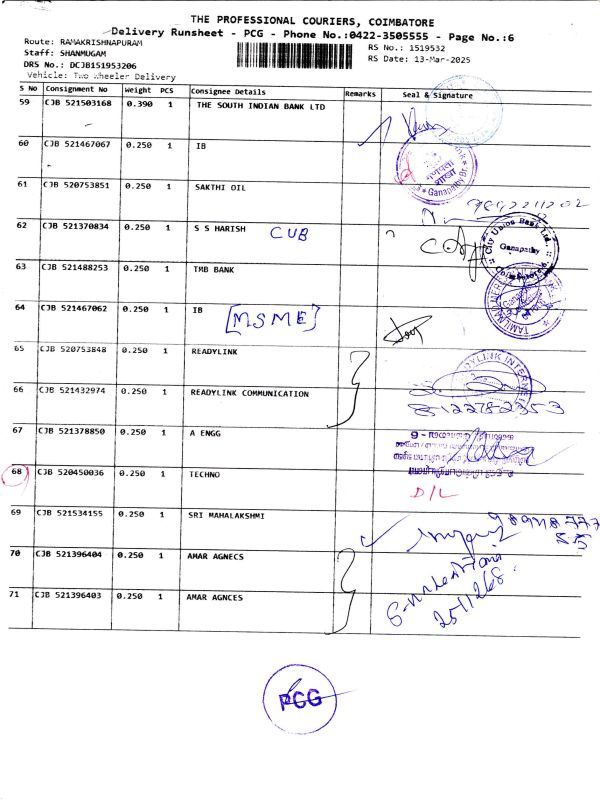 THE PROFESSIONAL COURIERS, COIMBATORE
Delivery Runsheet - PCG - Phone No.:0422-3505555 - Page No.:6
Route: RAMAKRISHNAPURAM
RS No.: 1519532
Staff: SHANMUGAM
RS Date: 13-Mar-2025
DRS No.: DCJB151953206
Vehicle: Two Wheeler Delivery
S No Consignment No Weight PCS Consignee Details Remarks Seal & Signature
59 CJB 521503168 0.390 1 THE SOUTH INDIAN BANK LTD
60 CJB 521467067 0.250 1 IB
Ganapathy
61 CJB 520753851 0.250 1 SAKTHI OIL
62 CJB 521370834 0.250 1 S S HARISH CUB
City Union Bank Ltd.
Ganapathy
Coimbatore-6
63 CJB 521488253 0.250 1 TMB BANK
64 CJB 521467062 0.250 1 IB [MSME]
65 CJB 520753848 0.250 1 READYLINK
66 CJB 521432974 0.250 1 READYLINK COMMUNICATION
67 CJB 521378850 0.250 1 A ENGG
68 CJB 520450036 0.250 1 TECHNO
D/L
69 CJB 521534155 0.250 1 SRI MAHALAKSHMI
70 CJB 521396404 0.250 1 AMAR AGNECS
71 CJB 521396403 0.250 1 AMAR AGNCES
2511268
PCG